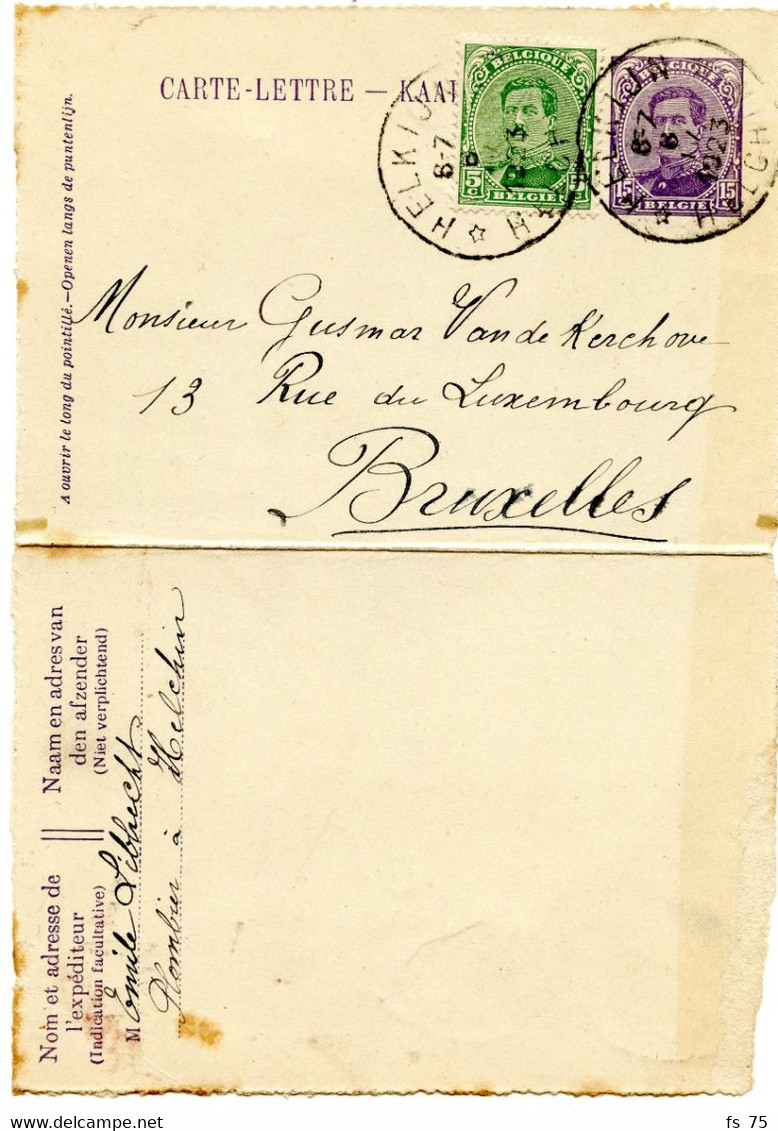 CARTE-LETTRE — KAA
BELGIQUE
5c
BELGIË
BELGIQUE
15c 15c
BELGIË
HELKIJN
6-7
1923
HELCHIN
6-7
1923
A ouvrir le long du pointillé.—Openen langs de puntenlijn.
Monsieur Gusmar Van de Kerchove
13 Rue du Luxembourg
Bruxelles
Nom et adresse de
l'expéditeur
(Indication facultative)
Naam en adres van
den afzender
(Niet verplichtend)
M Emile Libbrecht
Plombier à Helchin
fs 75